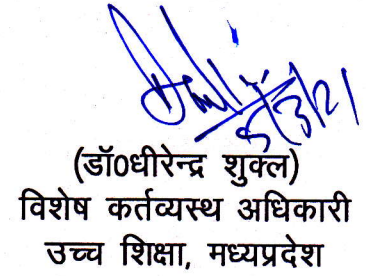 5/3/21
(डॉ0धीरेन्द्र शुक्ल)
विशेष कर्तव्यस्थ अधिकारी
उच्च शिक्षा, मध्यप्रदेश